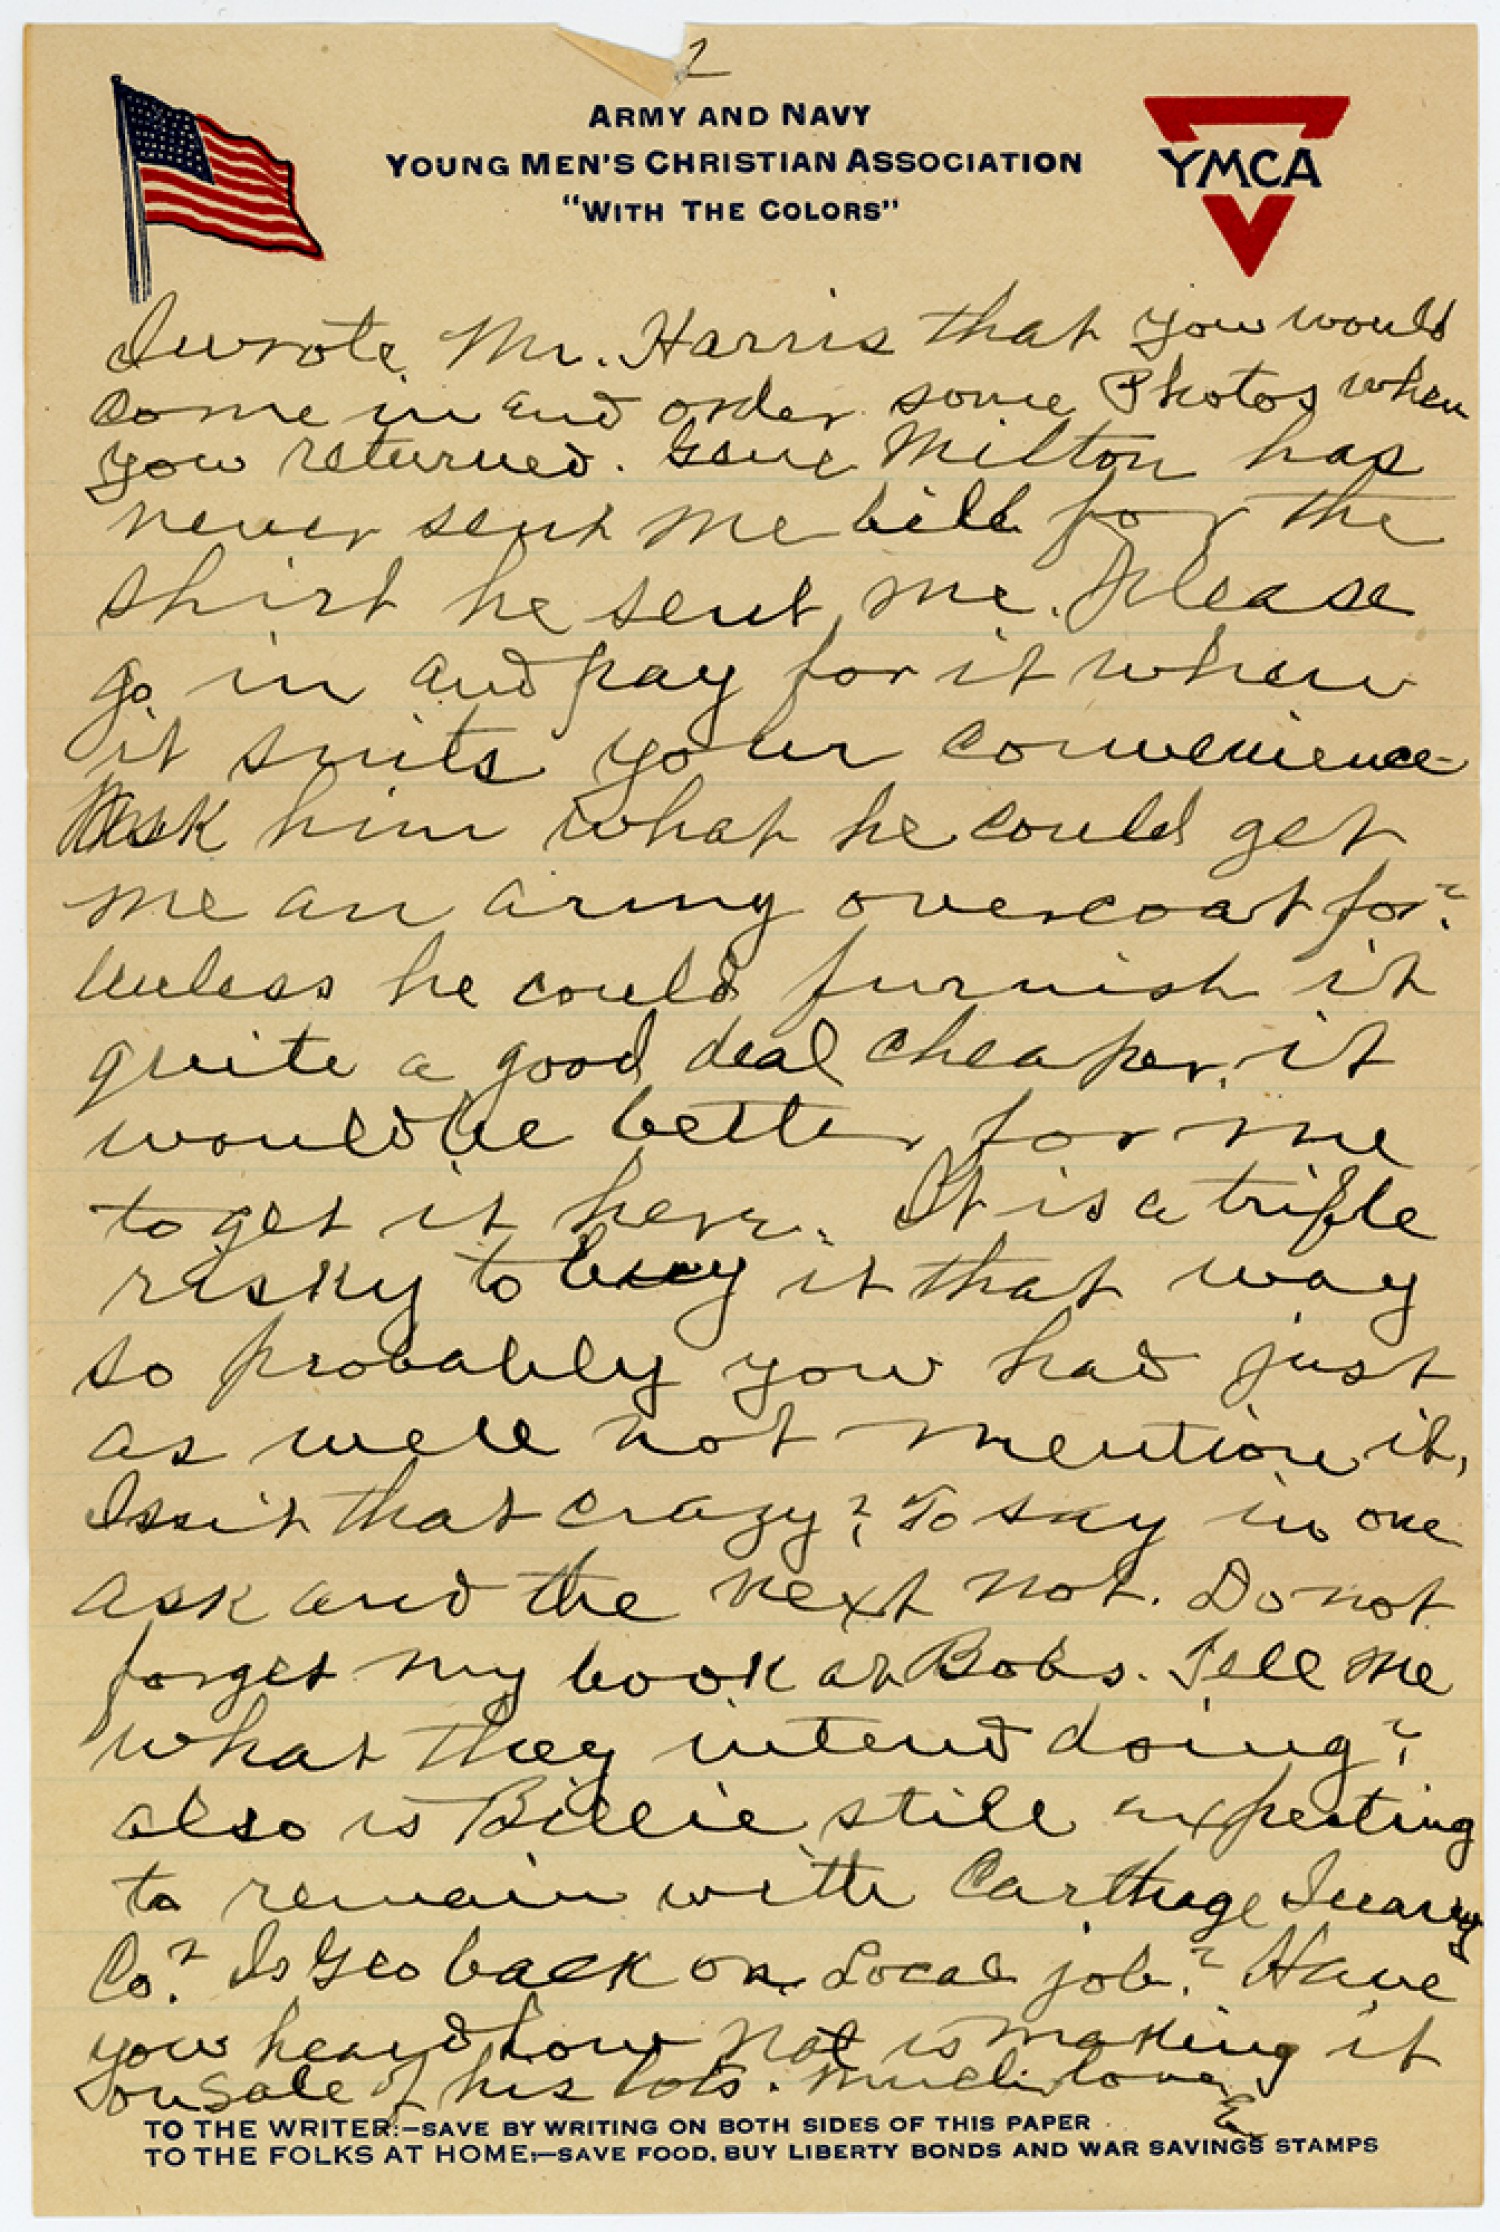 2
ARMY AND NAVY
YOUNG MEN'S CHRISTIAN ASSOCIATION
"WITH THE COLORS"
YMCA
I wrote Mr. Harris that you would
come in and order some Photos when
you returned. Gene Milton has
never sent me bill for the
shirt he sent me. Please
go in and pay for it when
it suits your convenience-
Ask him what he could get
me an army overcoat for?
Unless he could furnish it
quite a good deal cheaper, it
would be better for me
to get it here. It is a trifle
risky to buy it that way
so probably you had just
as well not mention it,
Isnit that crazy? To say in one
ask and the next not. Do not
forget my book at Bobs. Tell me
what they intend doing?
also is Billie still expecting
to remain with Carthage
Co? Is Geo back on Local job? Have
you heard how Nat is making it
on sale of his lots. Much love
E
TO THE WRITER:—SAVE BY WRITING ON BOTH SIDES OF THIS PAPER
TO THE FOLKS AT HOME:—SAVE FOOD, BUY LIBERTY BONDS AND WAR SAVINGS STAMPS